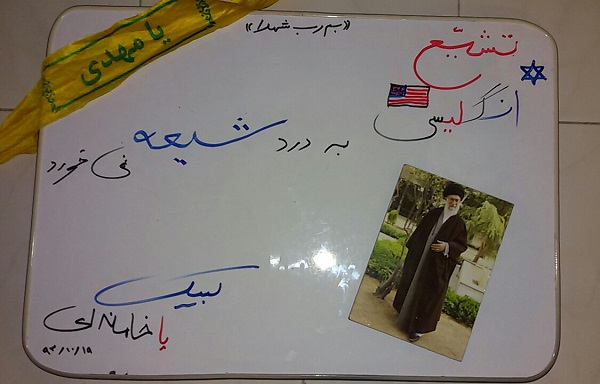 یا مهدی
«بسم رب شهدا»
تشیّع
انگلیسی
به درد شیعه نمی خورد
لبیک
یا خامنه ای
۹۴/۱۰/۱۹